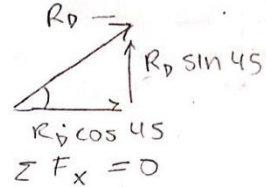 R_D —
R_D sin 45
R_D cos 45
Σ F_x = 0